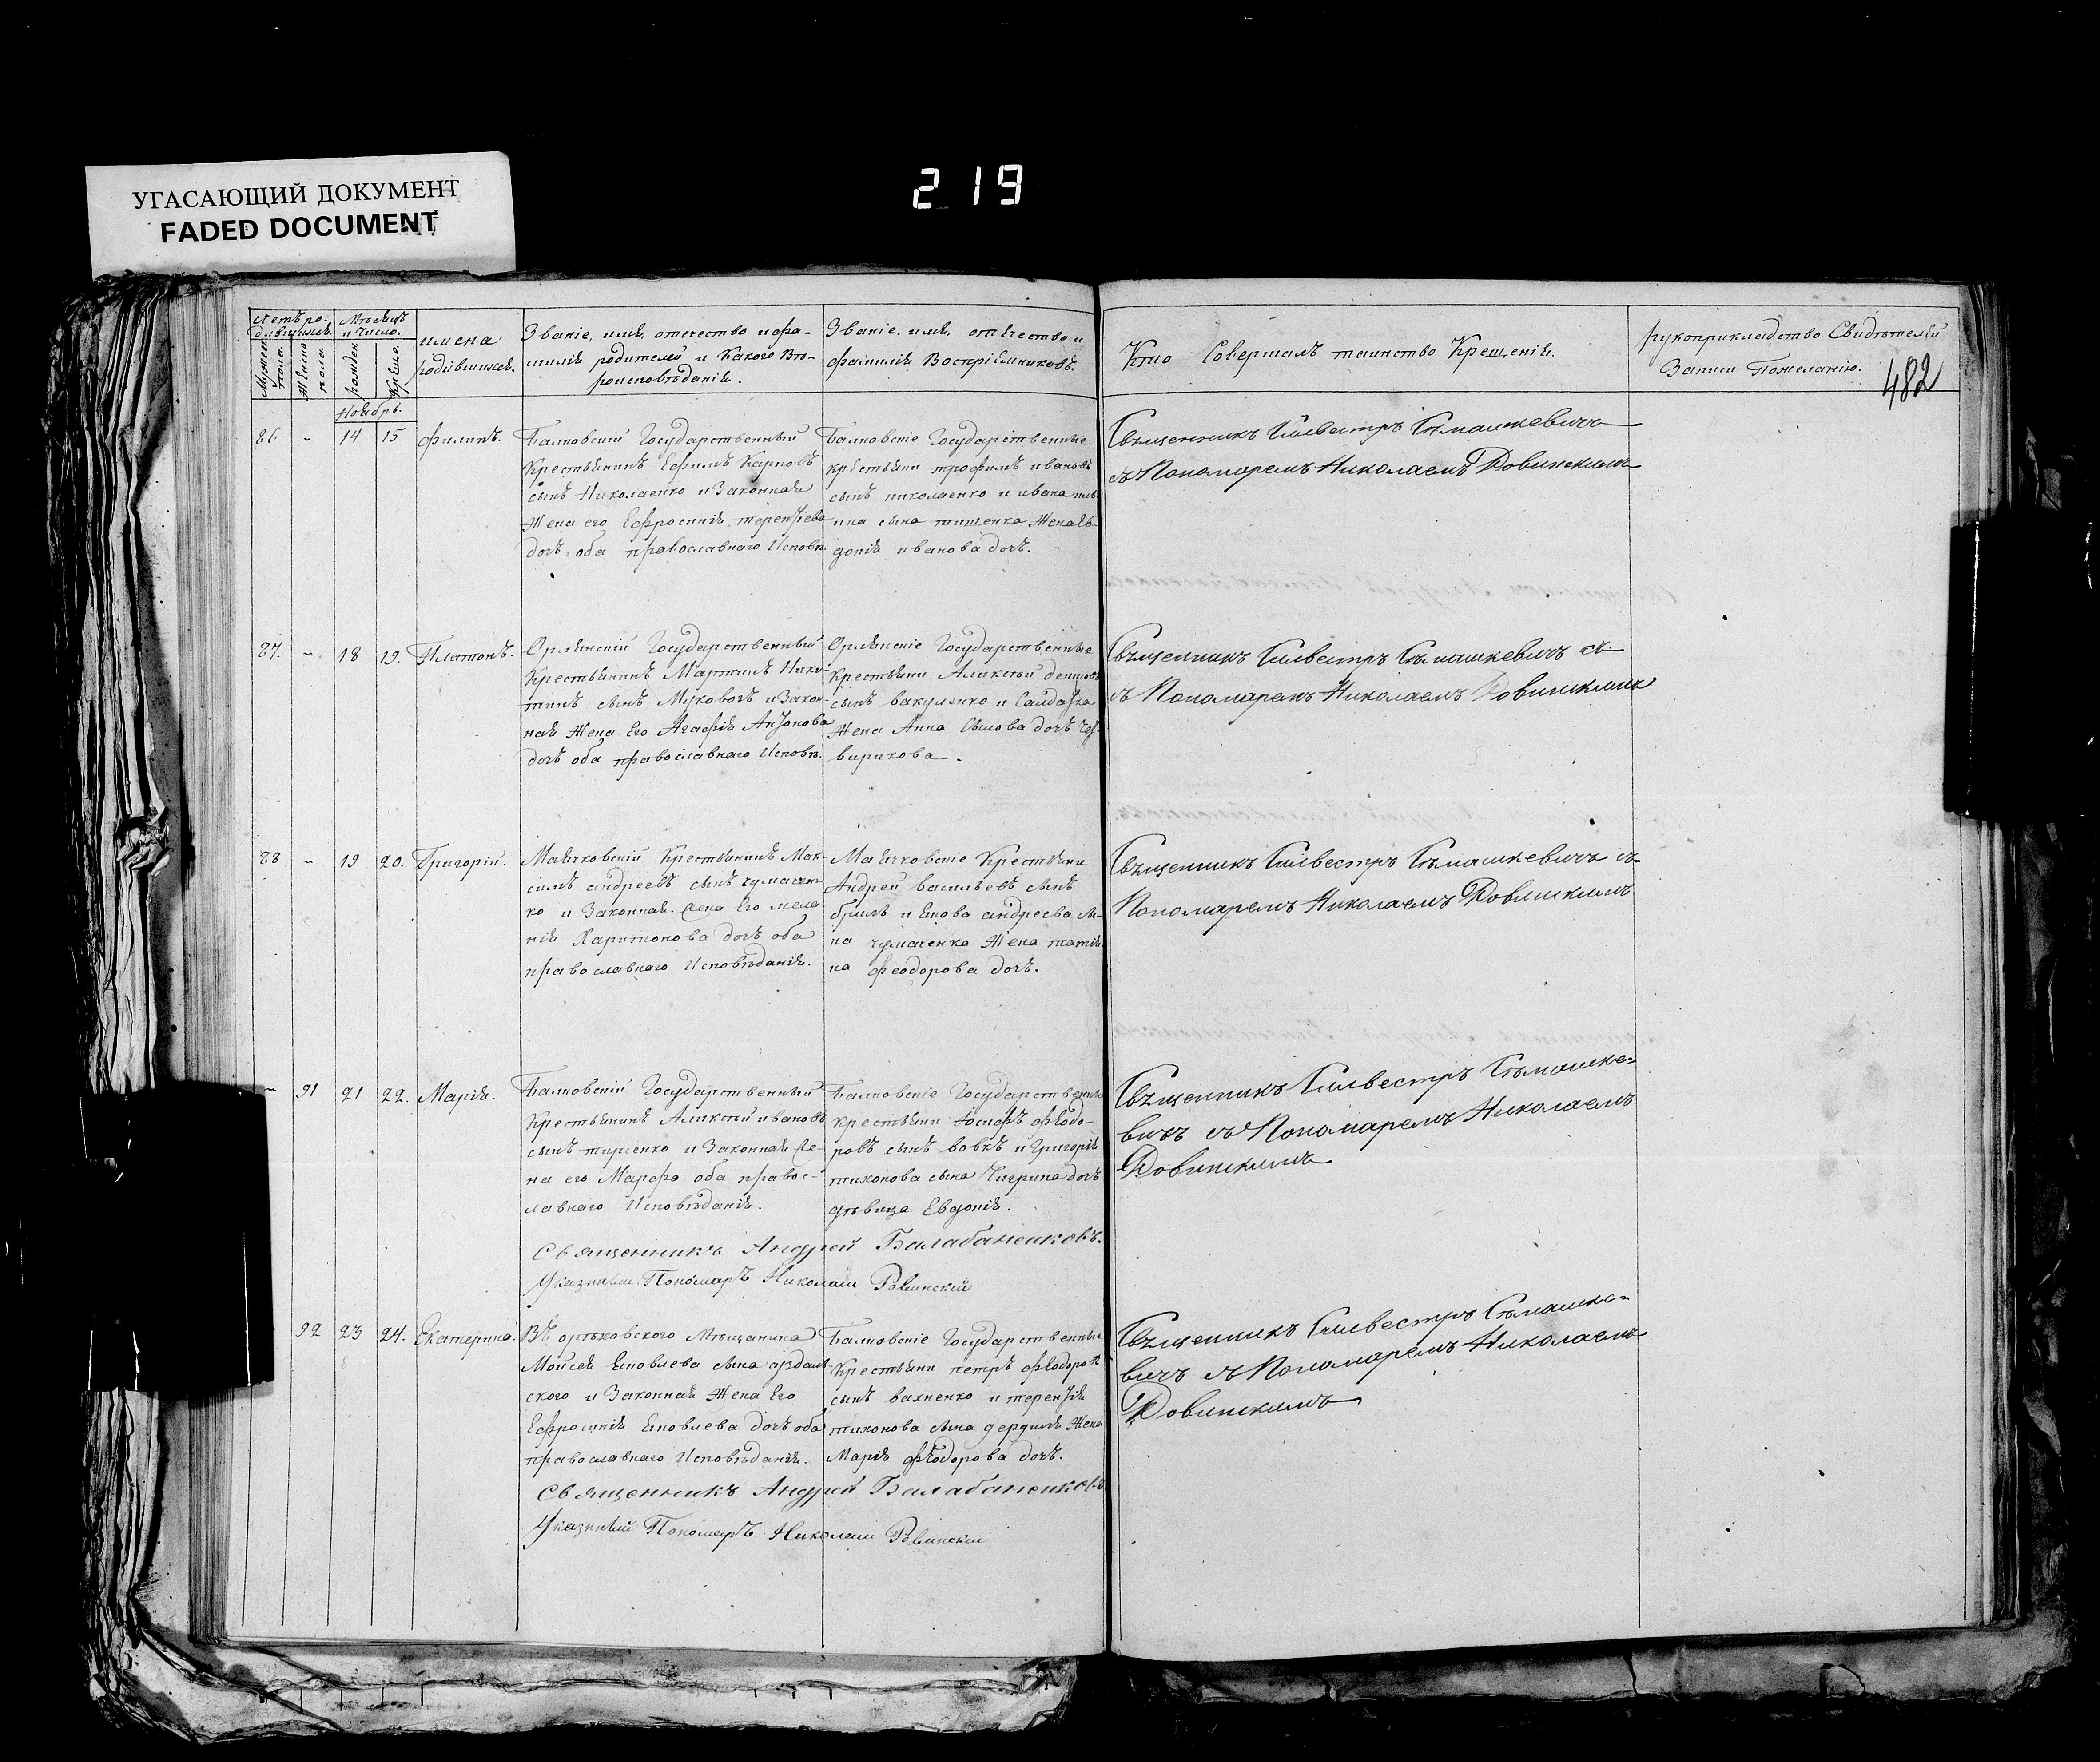 УГАСАЮЩИЙ ДОКУМЕНТ
FADED DOCUMENT
219
482
Мѣсяцъ
и число.
имена
родившихся.
Званіе, имя, отечество и фа-
милія родителей и какого Вѣ-
роисповѣданія.
Званіе, имя, отечество и
фамилія Воспріемниковъ.
Кто Совершалъ таинство Крещенія.
рукоприкладство Свидѣтелей
Записи Пожеланію.
Ноябрь.
86 - 14 15 Филипъ.
Государственный
Крестьянинъ Ефимъ Карповъ
сынъ Николаенко и Законная
Жена его Ефросинія терентіева
дочь оба православнаго Исповѣ.
Государственные
крестьяни трофимъ ивановъ
сынъ николаенко и ивана
сына тищенка Жена Ев-
докія иванова дочь.
Священникъ Сильвестръ Сѣмашкевичъ
съ Пономаремъ Николаемъ Ровинскимъ
87. - 18 19. Платонъ.
Орлянскій Государственный
Крестьянинъ Мартинъ Ники-
тинъ сынъ и Закон-
ная Жена Его Агафія Антонова
дочь оба православнаго Исповѣ.
Орлянскіе Государственные
крестьяни Аликсѣй
сынъ вакуленко и
Жена Анна дочь
Священникъ Сильвестръ Сѣмашкевичъ съ
съ Пономаремъ Николаемъ Ровинскимъ
88 - 19 20. Григорій.
Маячковскій Крестьянинъ Мак-
симъ андреевъ сынъ чумачен-
ко и Законная Жена Его мела-
нія Харитонова дочь оба
православнаго Исповѣданія.
Маячковскіе Крестьяни
Андрей васильевъ сынъ
и Якова андреева сы-
на чумаченка Жена татія-
на феодорова дочь.
Священникъ Сильвестръ Сѣмашкевичъ съ
Пономаремъ Николаемъ Ровинскимъ
- 91 21 22. Марія.
Государственный
Крестьянинъ Аликсѣй ивановъ
сынъ и Законная Же-
на его Марфа оба правос-
лавнаго Исповѣданія.
Государственные
крестьяни Іосифъ Феодо-
ровъ сынъ вовкъ и Григорія
тихонова сына Чигрина дочь
дѣвица Евдокія.
Священникъ Сильвестръ Сѣмашке-
вичъ съ Пономаремъ Николаемъ
Ровинскимъ
Священникъ Андрей Балабаненковъ.
Указный Пономарь Николай Ровинскій
92 23 24. Екатерина.
Мѣщанина
Моисея Яковлева сына
и Законная Жена Его
Ефросинія Яковлева дочь оба
православнаго Исповѣданія.
Государственные
Крестьяни петръ Феодоровъ
сынъ вахненко и терентія
тихонова сына Жена
Марія Феодорова дочь.
Священникъ Сильвестръ Сѣмашке-
вичъ съ Пономаремъ Николаемъ
Ровинскимъ
Священникъ Андрей Балабаненковъ
Указный Пономарь Николай Ровинскій